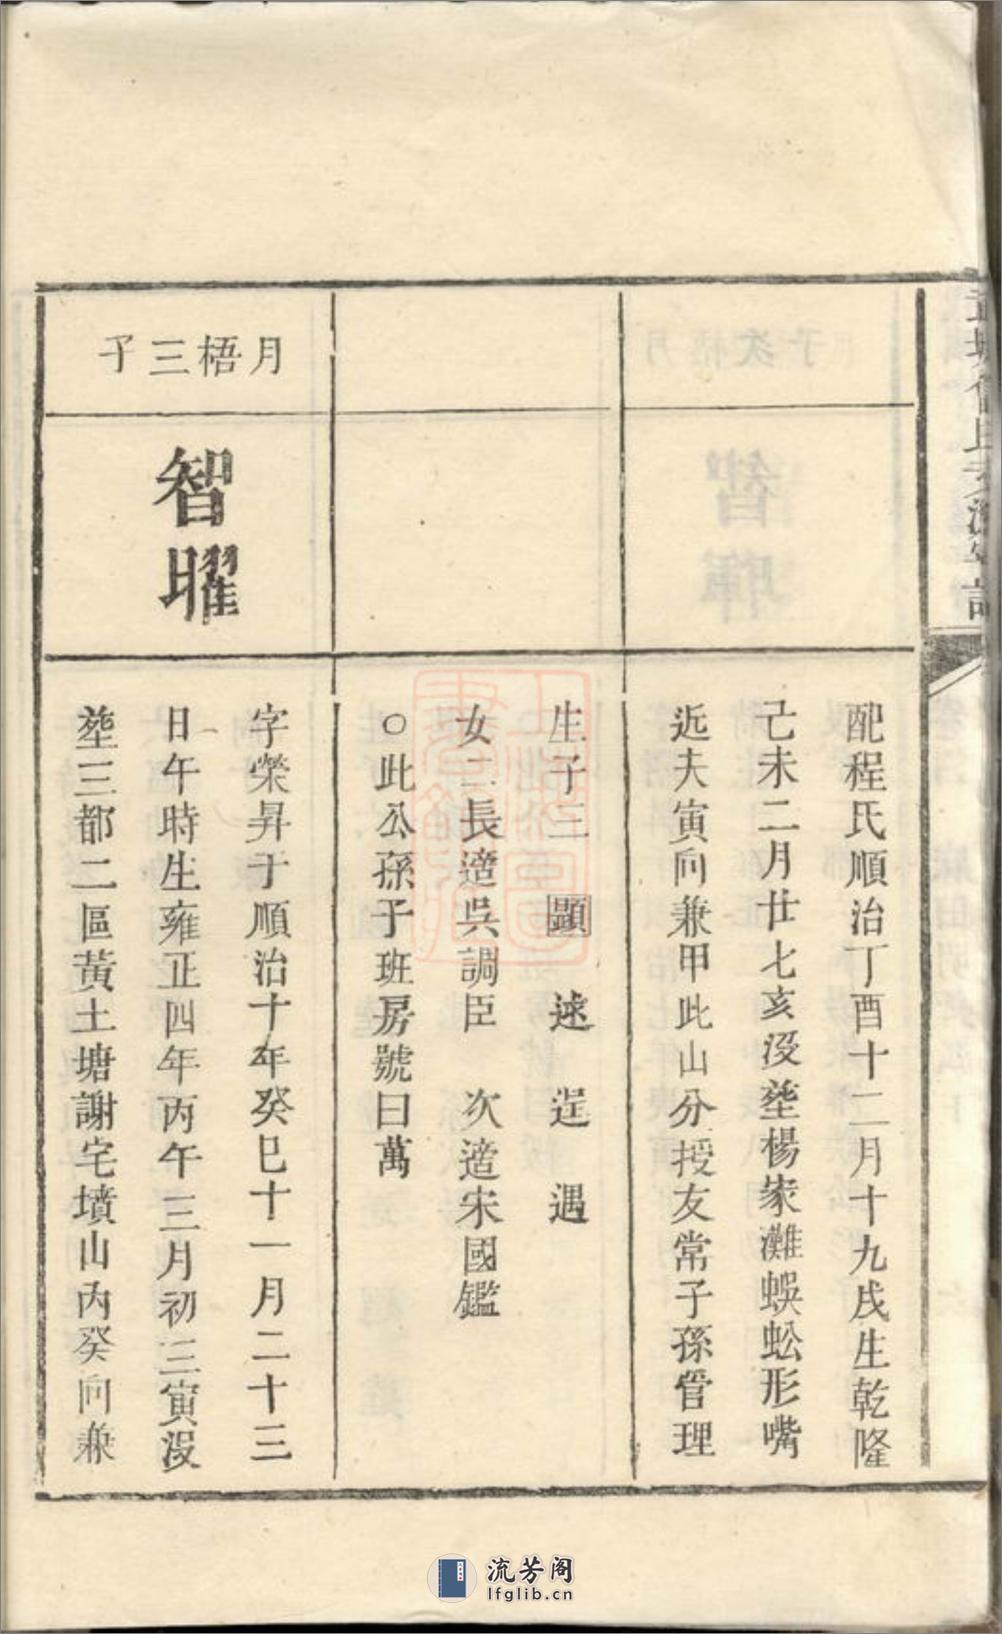 配程氏順治丁酉十二月十九戌生乾隆
己未二月廿七亥沒塟楊家灘蜈蚣形嘴
近夫寅向兼甲此山分授友常子孫管理
生子三 顯 逑 逞 遇
女二長適吳調臣 次適宋國鑑
○此公孫子班房號曰萬
月梧三子
智曜
字榮昇于順治十年癸巳十一月二十三
日午時生雍正四年丙午三月初三寅沒
塟三都二區黃土塘謝宅墳山內癸向兼
流芳阁
lfglib.cn